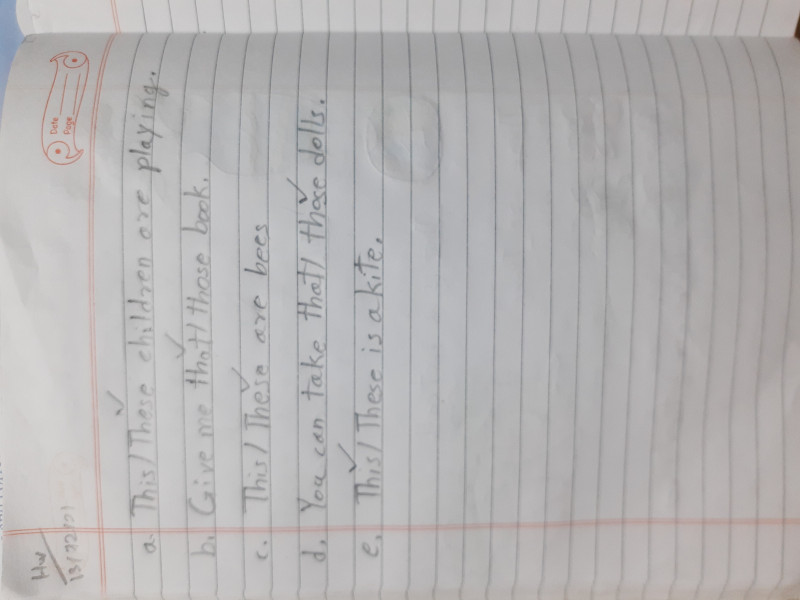 HW
Date
Page
a. This/These children are playing.
b. Give me that/those book.
c. This/These are bees
d. You can take that/those dolls.
e. This/These is a kite.